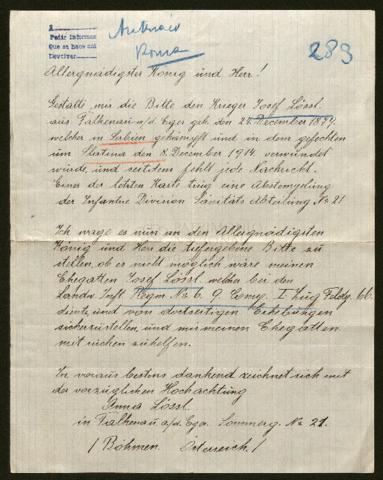 A
Pedir informes
Que se hace así
Devolver
Roma
283
Allergnädigster König und Herr!
Gestatte mir die Bitte den Krieger Josef Lössl.
aus Falkenau a/d. Eger geb. den 24. December 1879,
welcher in Serbien gekämpft und in dem gefechten
um Slatina den 8. December 1914 verwundet
wurde, und seitdem fehlt jede Nachricht.
Eine der letzten Karte trug eine Abstempelung
der Infantrie Division Sanitäts Abteilung No 21
Ich wage es nun an den Allergnädigsten
König und Herr die tiefergebene Bitte zu
stellen, ob es nicht möglich wäre meinen
Ehegatten Josef Lössl. welcher bei den
Landw. Inft. Regm. No 6. 9. Comp. I. Zug Feldp. 66.
diente, und von dortseitigen Erhebungen
sicherzustellen, und mir meinen Ehegatten
mit suchen zu helfen.
In voraus bestens dankend zeichnet sich mit
der vorzüglichen Hochachtung
Anna Lössl.
in Falkenau a/d. Eger. No 21.
/ Böhmen. Österreich. /